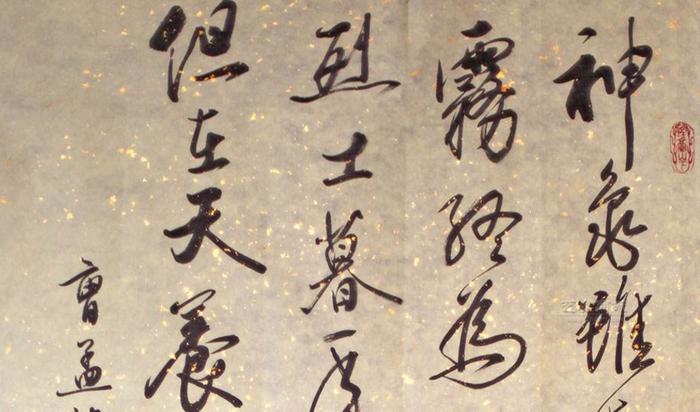 神龜雖
霧終為
烈士暮
但在天養
曹孟